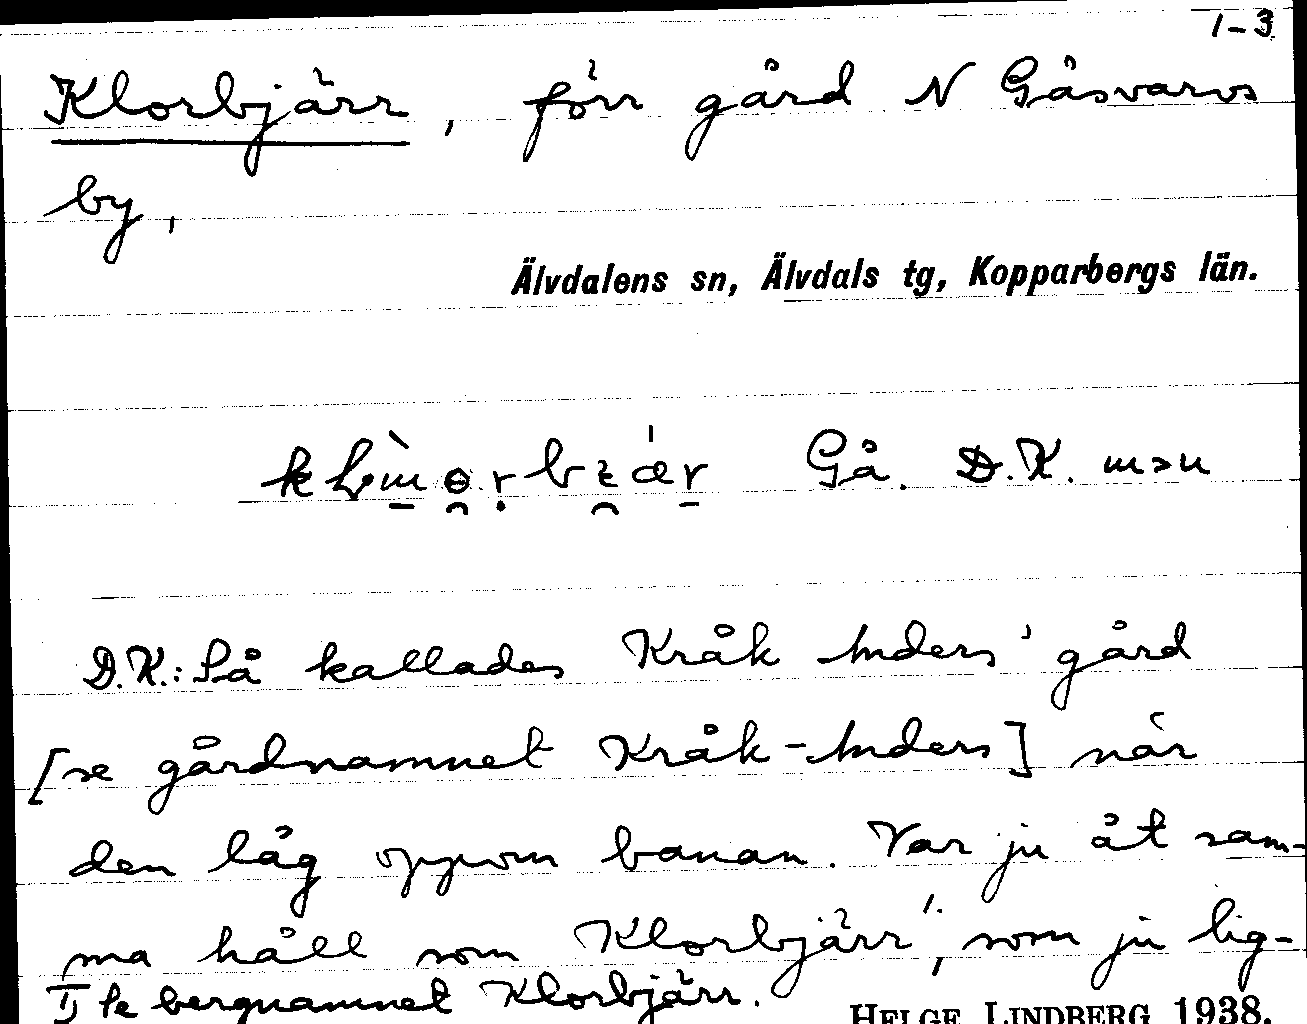 1-3
Klorbjärr, förr gård N Gåsvarvs
by,
Älvdalens sn, Älvdals tg, Kopparbergs län.
Gå. D.K. m>u
D.K.: Så kallades Kråk Anders' gård
[se gårdnamnet Kråk-Anders] när
den låg oppom banan. Var ju åt sam-
ma håll som Klorbjärr¹, som ju lig-
1) Se bergnamnet Klorbjärr.
HELGE LINDBERG 1938.